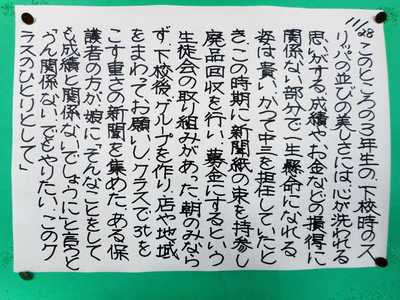 11/28
このところの3年生の、下校時のス
リッパの並びの美しさには、心が洗われる
思いがする。成績やお金などの損得に
関係ない部分で一生懸命になれる
姿は貴い。かつて中三を担任していたと
き、この時期に新聞紙の束を持参し
廃品回収を行い、募金にするという
生徒会の取り組みがあった。朝のみなら
ず、下校後、グループを作り、店や地域
をまわってお願いし、クラスで3tを
こす重さの新聞を集めた。ある保
護者の方が、娘に「そんなことをして
も成績と関係ないでしょうに」と言うと
「うん関係ない、でもやりたい、このク
ラスのひとりとして」